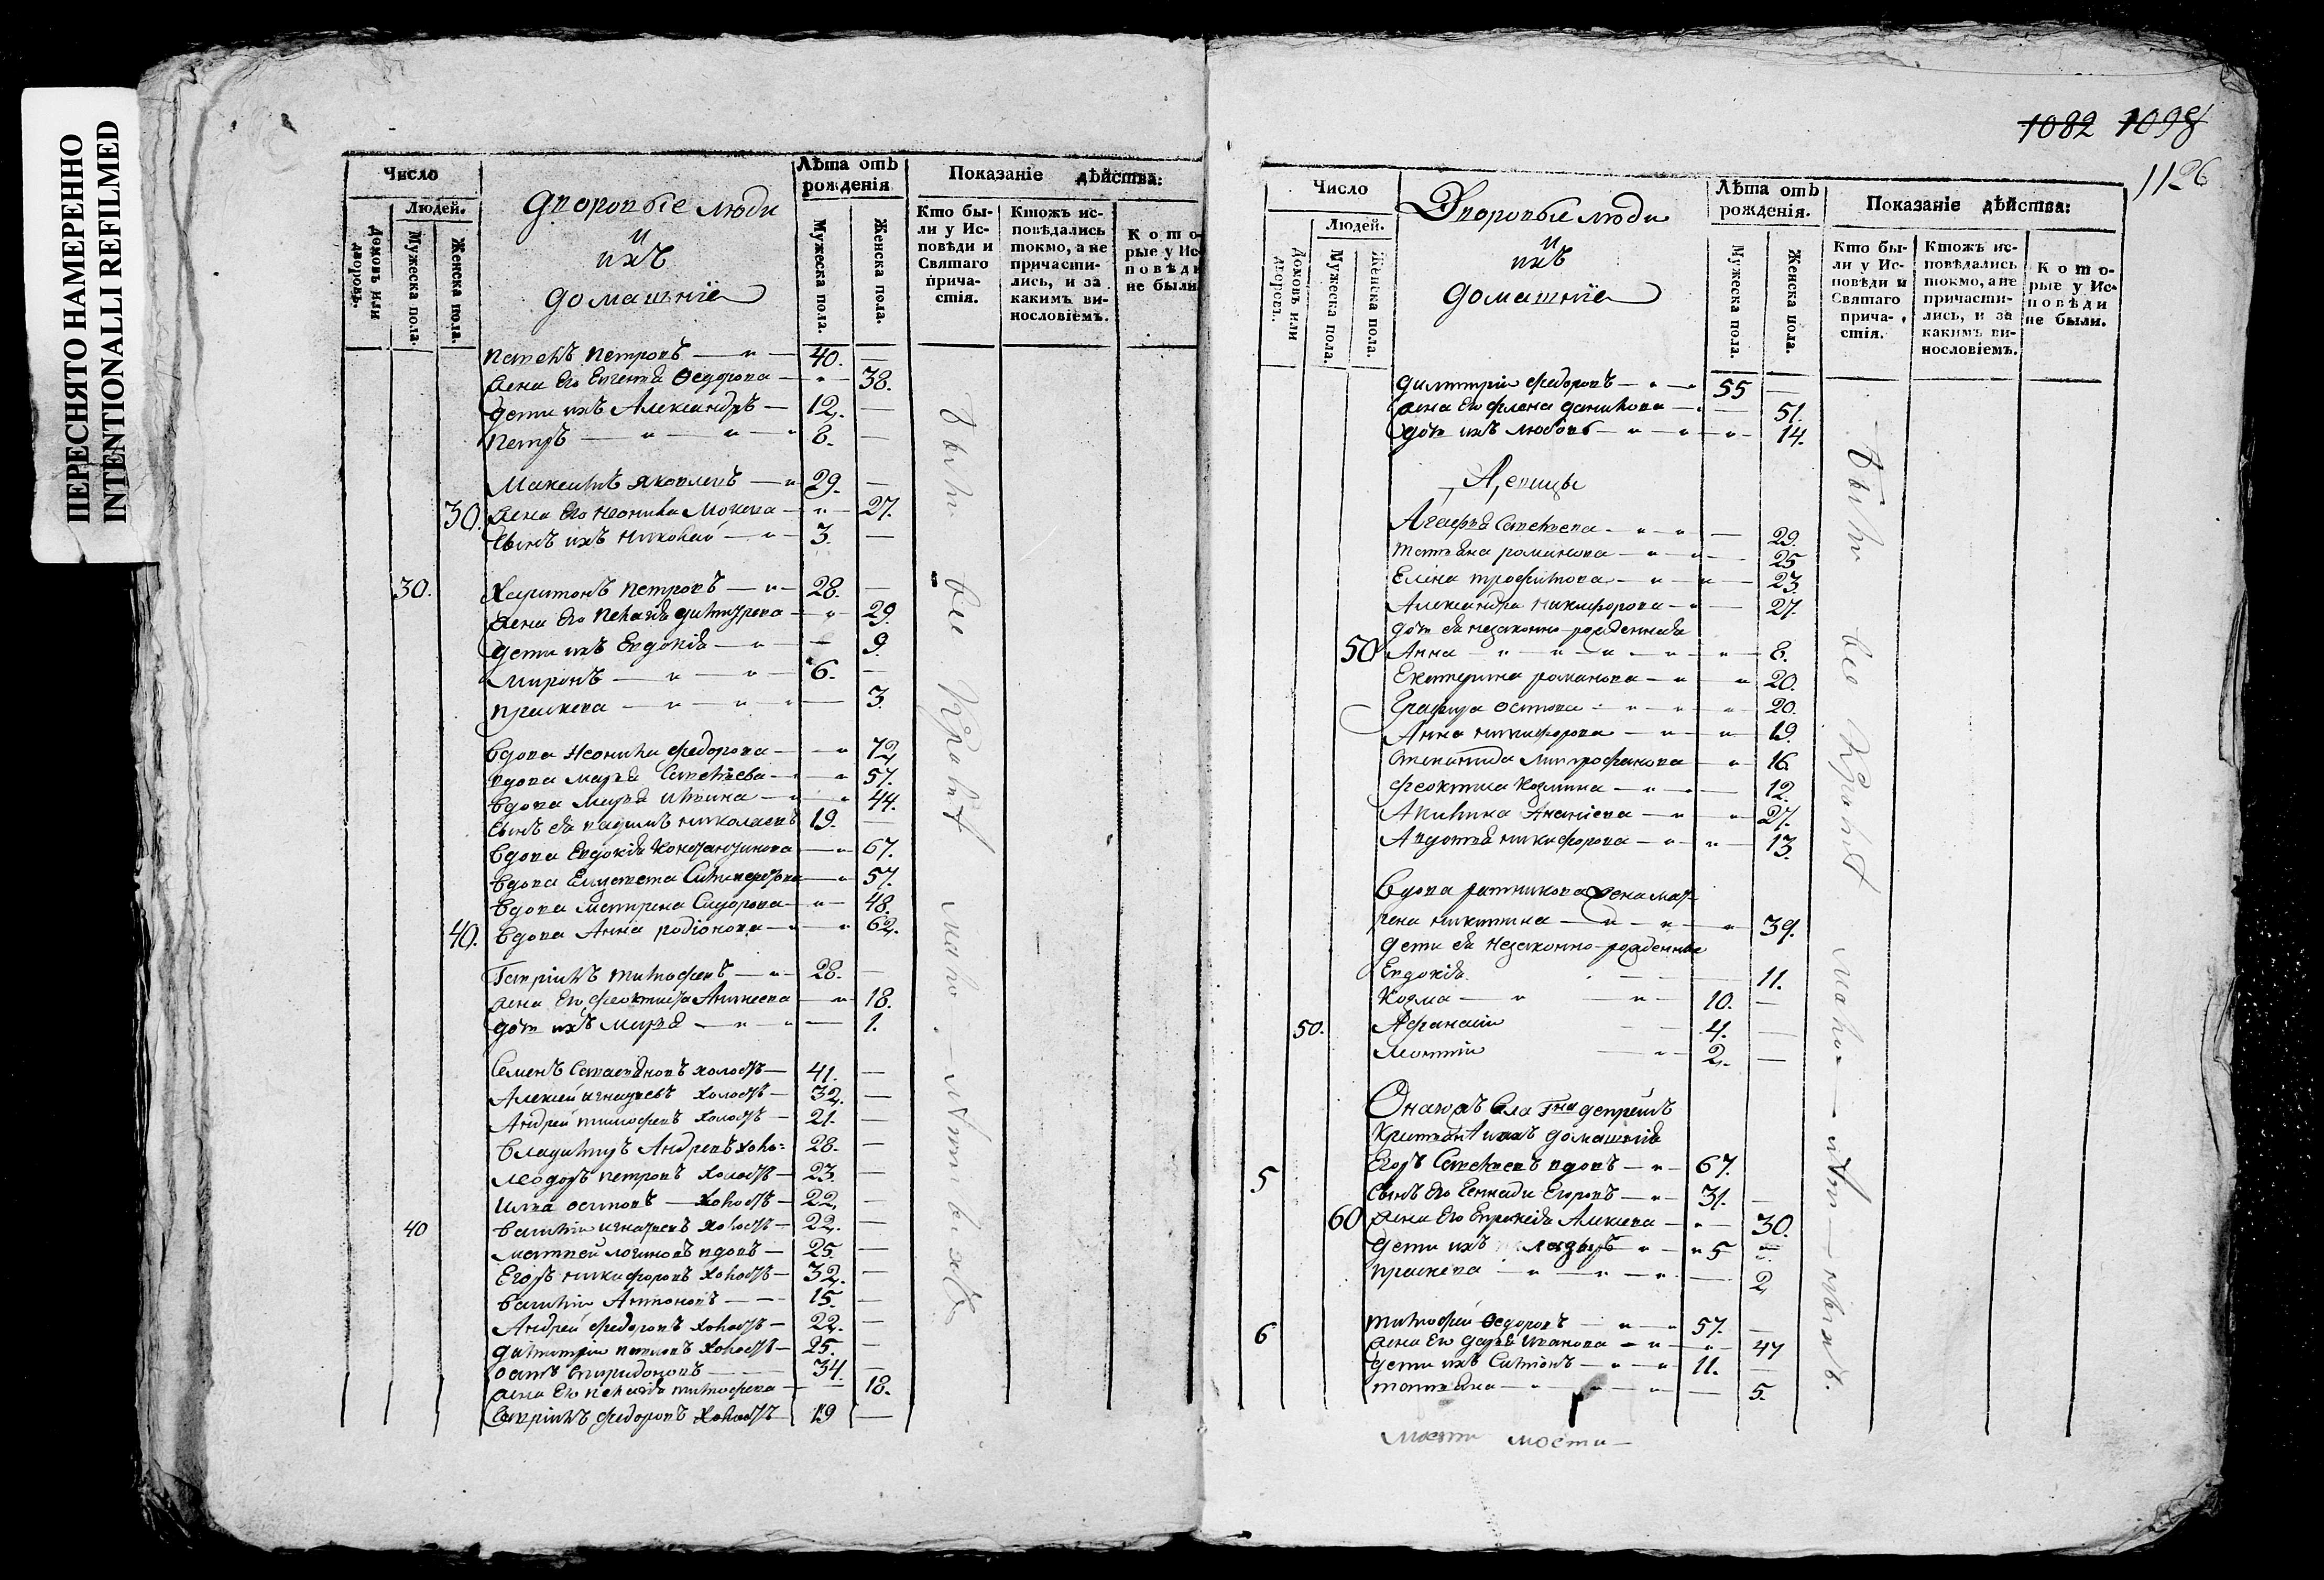 ПЕРЕСНЯТО НАМЕРЕННО
INTENTIONALLI REFILMED
Число
Людей.
Домовъ или дворовъ.
Мужеска пола.
Женска пола.
Дворовые люди
и
ихъ
домашніе
Лѣта отъ рожденія
Мужеска пола.
Женска пола.
Показаніе дѣйства:
Кто были у Исповѣди и Святаго причастія.
Ктожъ исповѣдались токмо, а не причастились, и за какимъ винословіемъ.
Которые у Исповѣди не были.
Павелъ Петровъ 40.
жена его Евгенія Ѳедорова 38.
дети ихъ Александръ 12.
Петръ 8.
Максимъ Яковлевъ 29.
30. жена его Неонила 27.
сынъ ихъ Николай 3.
30. Харитонъ Петровъ 28.
жена его Пелагѣя Димитрева 29.
дети ихъ Евдокія 9.
Миронъ 6.
Прасковя 3.
вдова Неонила Федорова 72.
вдова Марья Савельева 57.
вдова Марья Ильина 44.
сынъ ея Вадимъ Николаевъ 19.
вдова Евдокія Константинова 67.
вдова Елизавета 57.
вдова Матрена Сидорова 48.
40. вдова Анна Родіонова 62.
Гаврилъ Тимофевъ 28.
жена его Феоктиста 18.
дочь ихъ Марья 1.
Семенъ холостъ 41.
Алексей Игнатьевъ холостъ 32.
Андрей Тимофевъ холостъ 21.
Владимиръ Андревъ холо= 28.
Ѳедоръ Петровъ холостъ 23.
Илья Осиповъ холостъ 22.
40 Василій Игнатьевъ холостъ 22.
Матвей Логиновъ вдовъ 25.
Егоръ Никифоровъ холостъ 32.
Василій Антоновъ 15.
Андрей Федоровъ холостъ 22.
Димитрій Павловъ холостъ 25.
Спиридоновъ 34.
жена его Пелагѣя Тимофева 18.
Гаврилъ Федоровъ холостъ 19
были все кромѣ мало-лѣтнихъ
1082 1098
1126
Число
Людей.
Домовъ или дворовъ.
Мужеска пола.
Женска пола.
Дворовые люди
и
ихъ
домашніе
Лѣта отъ рожденія.
Мужеска пола.
Женска пола.
Показаніе дѣйства:
Кто были у Исповѣди и Святаго причастія.
Ктожъ исповѣдались токмо, а не причастились, и за какимъ винословіемъ.
Которые у Исповѣди не были.
Димитрій Федоровъ 55
жена его Елена Данилова 51.
дочь ихъ Любовь 14.
Девицы
Агафья Савельева 29.
Татьяна Романова 25
Елена Трофимова 23.
Александра Никифорова 27.
дочь ея незаконно-рожденная
50 Анна 8.
Екатерина Романова 20.
Осипова 20.
Анна Никифорова 19.
Степанида Митрофанова 16
Феоктиста Козмина 12.
Акилина Ананіева 27.
Авдотья Никифорова 13.
вдова ратникова жена Мат-
рена Никитина 39.
дети ея незаконно-рожденные
Евдокія 11.
Козма 10.
50. Афанасій 4.
Леонтій 2.
Онагожъ села Гна
крестьяне и ихъ домашнія
5 Егоръ Савельевъ вдовъ 67.
сынъ его Геннади Егоровъ 31.
60 жена его 30.
дети ихъ Лазарь 5
Прасковя 2
6 Тимофей Ѳедоровъ 57.
жена его Дарья Иванова 47
дети ихъ Симіонъ 11.
Татьяна 5.
были все кромѣ мало-лѣтнихъ.
мости мости